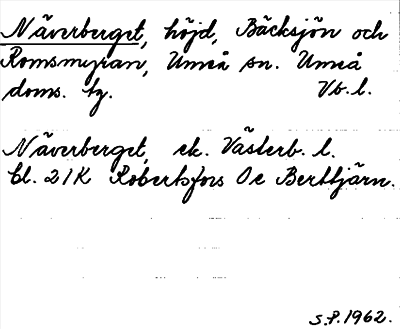 Näverberget, höjd, Bäcksjön och
Romsmyran, Umeå sn. Umeå
doms. tg. Vb. l.
Näverberget, ek. Västerb. l.
bl. 21K Robertsfors Oe Berttjärn.
S.P. 1962.